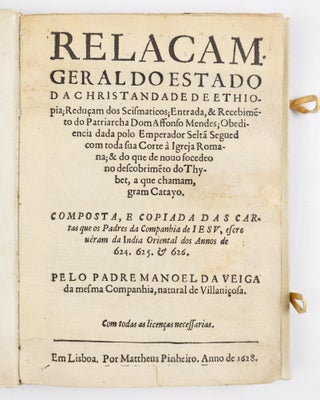 RELACAM
GERAL DO ESTADO
DA CHRISTANDADE DE ETHIO-
pia; Reduçam dos Scismaticos; Entrada, & Recebimẽ-
to do Patriarcha Dom Affonso Mendes; Obedi-
encia dada polo Emperador Seltã Segued
com toda sua Corte à Igreja Roma-
na; & do que de nouo socedeo
no descobrimẽto do Thy-
bet, a que chamam,
gram Catayo.
COMPOSTA, E COPIADA DAS CAR-
tas que os Padres da Companhia de IESV, escre
uéram da India Oriental dos Annos de
624. 625. & 626.
PELO PADRE MANOEL DA VEIGA
da mesma Companhia, natural de Villauiçosa.
Com todas as licenças necessarias.
Em Lisboa. Por Mattheus Pinheiro. Anno de 1628.